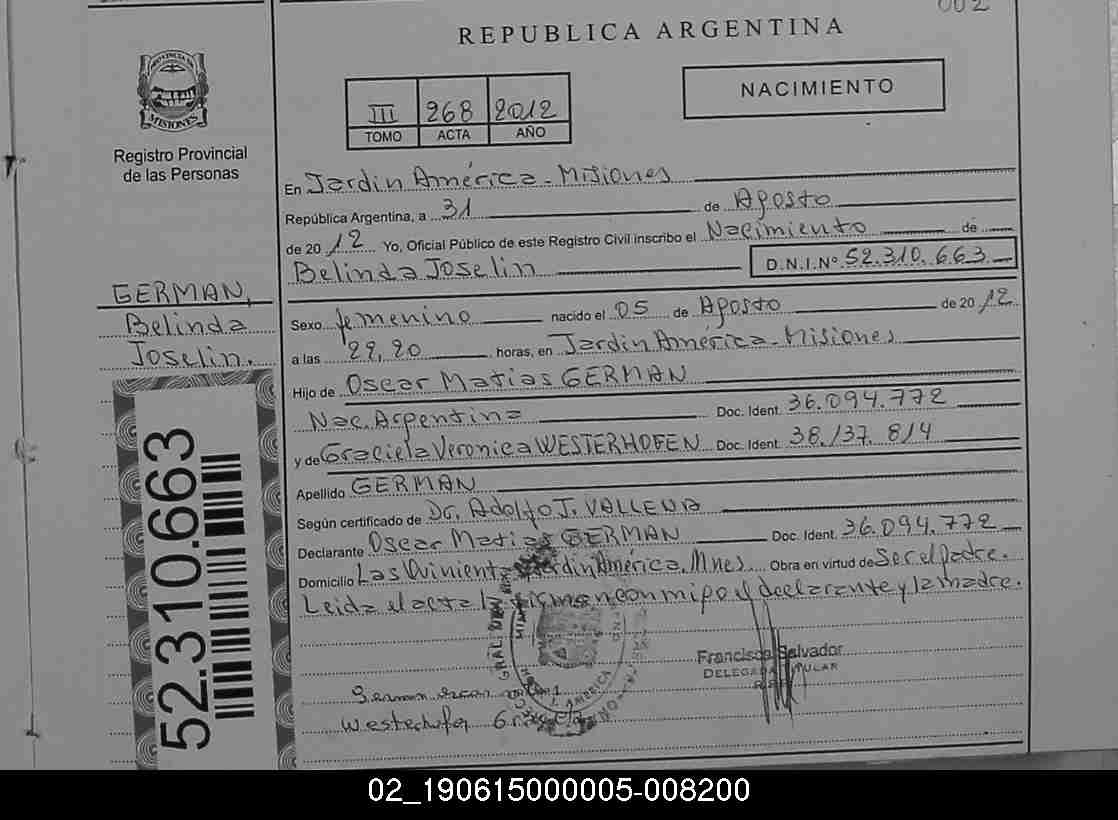 002
REPUBLICA ARGENTINA
PROVINCIA DE
MISIONES
Registro Provincial
de las Personas
III 268 2012
TOMO ACTA AÑO
NACIMIENTO
En Jardin América - Misiones
República Argentina, a 31 de Agosto
de 2012 Yo, Oficial Público de este Registro Civil inscribo el Nacimiento de
Belinda Joselin D.N.I.Nº 52.310.663
GERMAN,
Belinda
Joselin.
Sexo femenino nacido el 05 de Agosto de 2012
a las 22,20 horas, en Jardin América - Misiones
Hijo de Oscar Matias GERMAN
Nac. Argentina Doc. Ident. 36.094.772
y de Graciela Veronica WESTERHOFEN Doc. Ident. 38.137.814
Apellido GERMAN
Según certificado de Dr. Adolfo J. VALLENA
Declarante Oscar Matias GERMAN Doc. Ident. 36.094.772
Domicilio Las Quinientas Jardin América, Mnes. Obra en virtud de Ser el Padre.
Leida el acta la firman conmigo el declarante y la madre.
52.310.663
Francisco Salvador
DELEGADA TITULAR
J. AMERICA
02_190615000005-008200